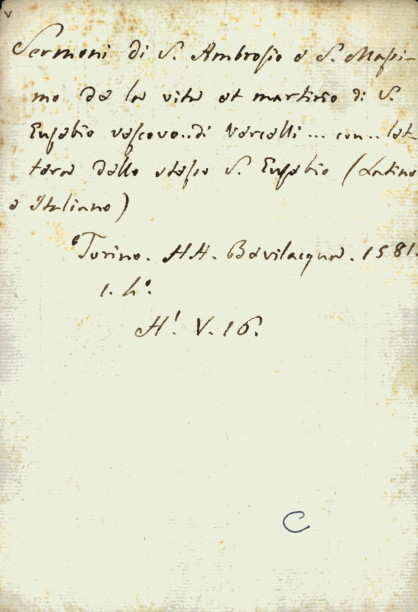 v
Sermoni di S. Ambrosio e S. Massi-
mo de la vita et martirio di S.
Eusebio vescovo.. di Vercelli... con.. let-
tera dello stesso S. Eusebio (Latino
e Italiano)
Torino. HH. Bevilacqua. 1581.
1. 4º.
H! V. 16.
C